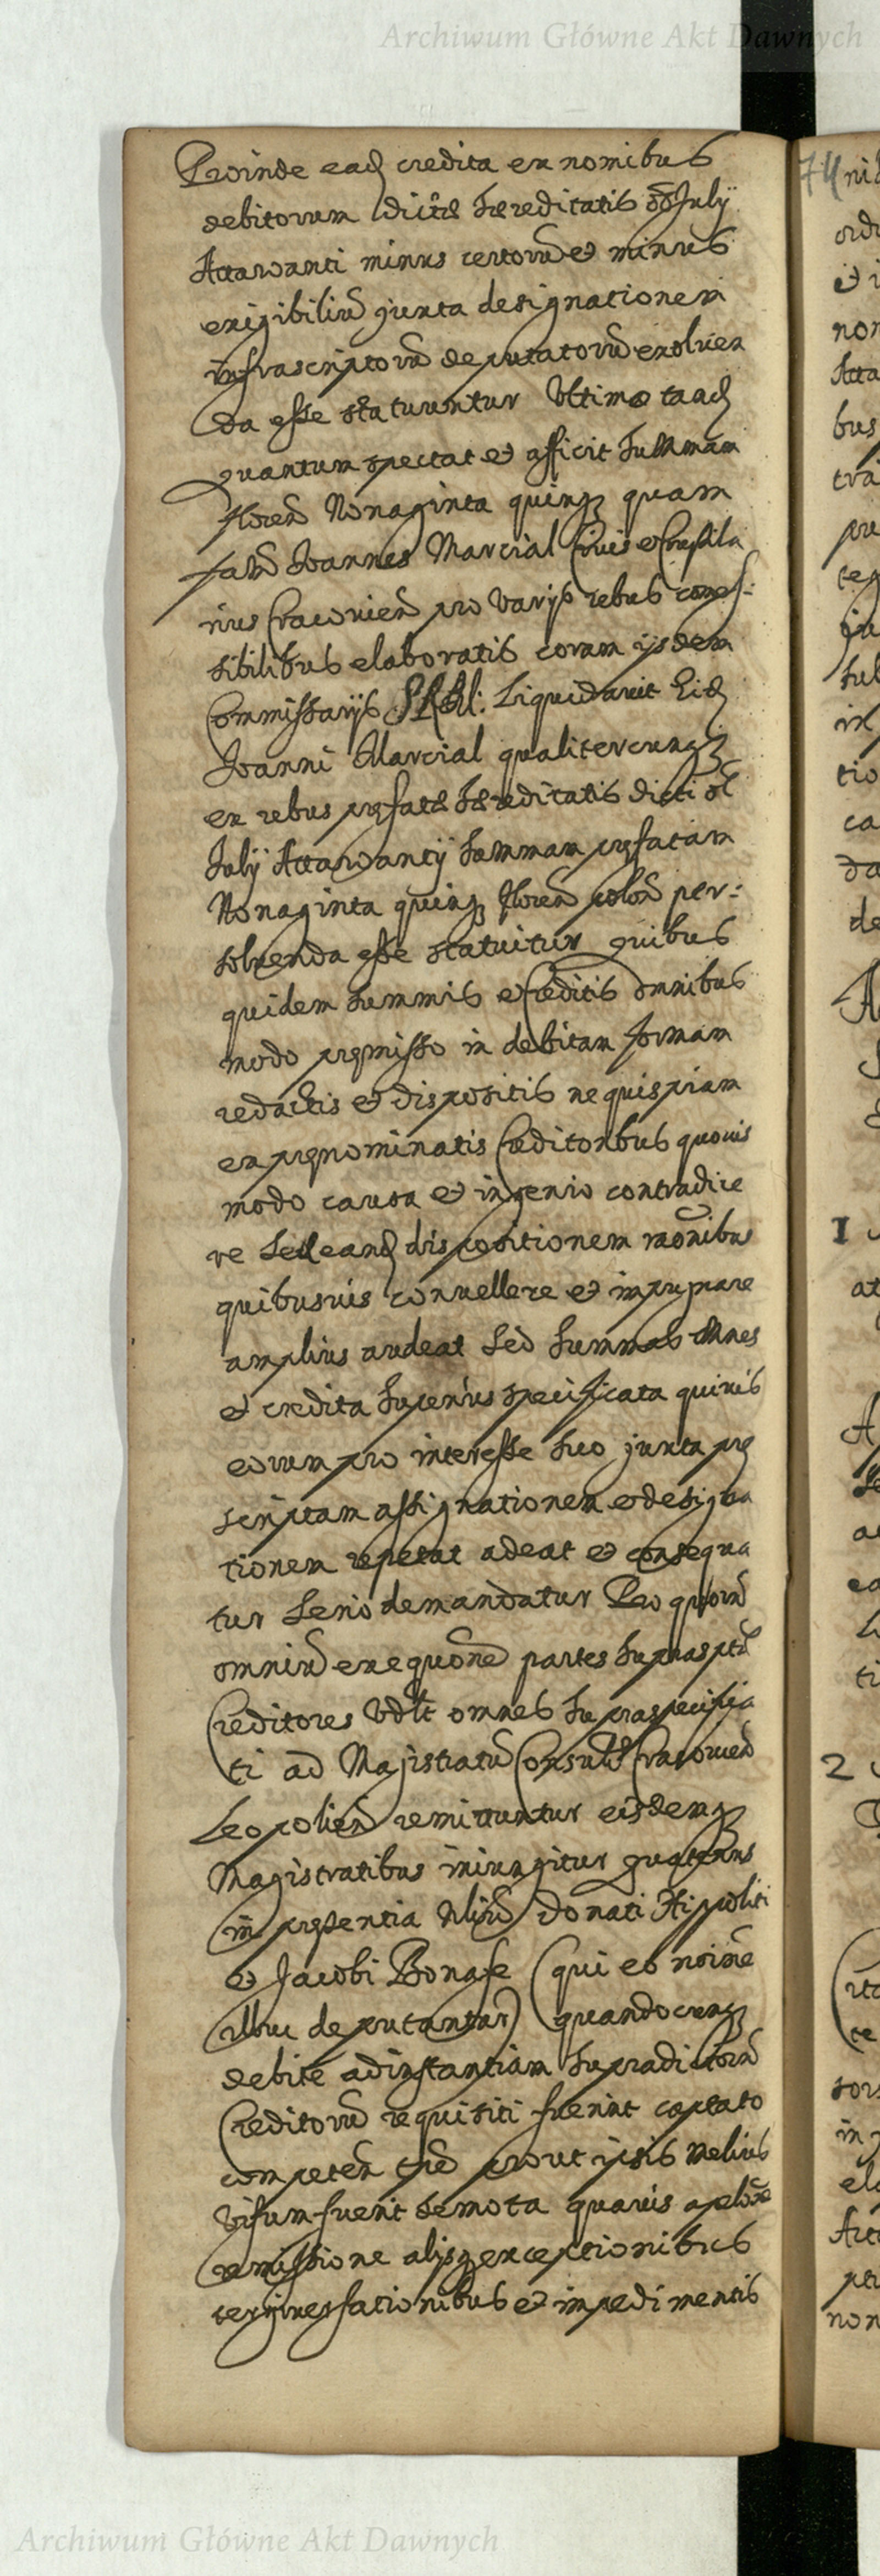 Archiwum Główne Akt Dawnych
Proinde eadē credita ex nominibus
debitorum dictæ Hæreditatis olim July
Attavanti minus certorū et minus
exigibiliū juxta designationem
infrascriptorū deputatorū exoluen
da esse statuuntur Vltimo tandē
quantum spectat et afficit Summam
floren̄ Nonaginta quinq3 quam
famā Joannes Marcial Ciuis et
rius Cracovien̄ pro varijs rebus comes:
tibilibus elaboratis coram ijsdem
Commissarijs SRM: Liquidavit Eidē
Joanni Marcial qualitercunq3
ex rebus præfatæ Hæreditatis dicti ol
July Attavantij Summam præfatam
Nonaginta quinq3 floren̄ polon̄ per:
solvenda esse statuitur quibus
quidem Summis et Creditis omnibus
modo præmisso in debitam formam
redactis et dispositis ne quispiam
ex prænominatis Creditoribus quovis
modo causa et ingenio contradice
re Seu eand̄ dispositionem raōnibus
quibusvis convellere et impugnare
amplius audeat Sed Summas omnes
et credita Superius specificata quivis
eorum pro interesse suo juxta præ
scriptam assignationem et designa
tionem repetat adeat et consequa
tur Serio demandatur Pro quorū
omniū exequōne partes suprasptæ
Creditores Vdlt omnes Supraspecifica
ti ad Magistratū Consulū Cracovien̄
Leopolien̄ remittuntur eisdemq3
Magistratibus iniungitur quatenus
in præsentia Donati Hippoliti
et Jacobi Bonafe (qui eo noīne
illuc deputantur) quandocunq3
debite ad instantiam Supradictorū
Creditorū requisiti fuerint captato
competen̄ tp̄re prout ipsis melius
visum fuerit Semota quavis apelōne
remissione alijsq3 exceptionibus
tergiversationibus et impedimentis
74
1
2
Archiwum Główne Akt Dawnych